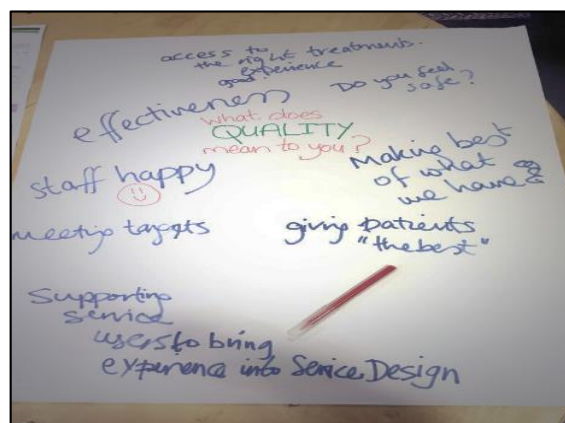 access to
the right treatments.
good experience
Do you feel
safe?
effectiveness
what does
QUALITY
mean to you?
Making best
of what
we have
staff happy
meeting targets
giving patients
"the best"
Supporting
service
users to bring
experience into Service Design